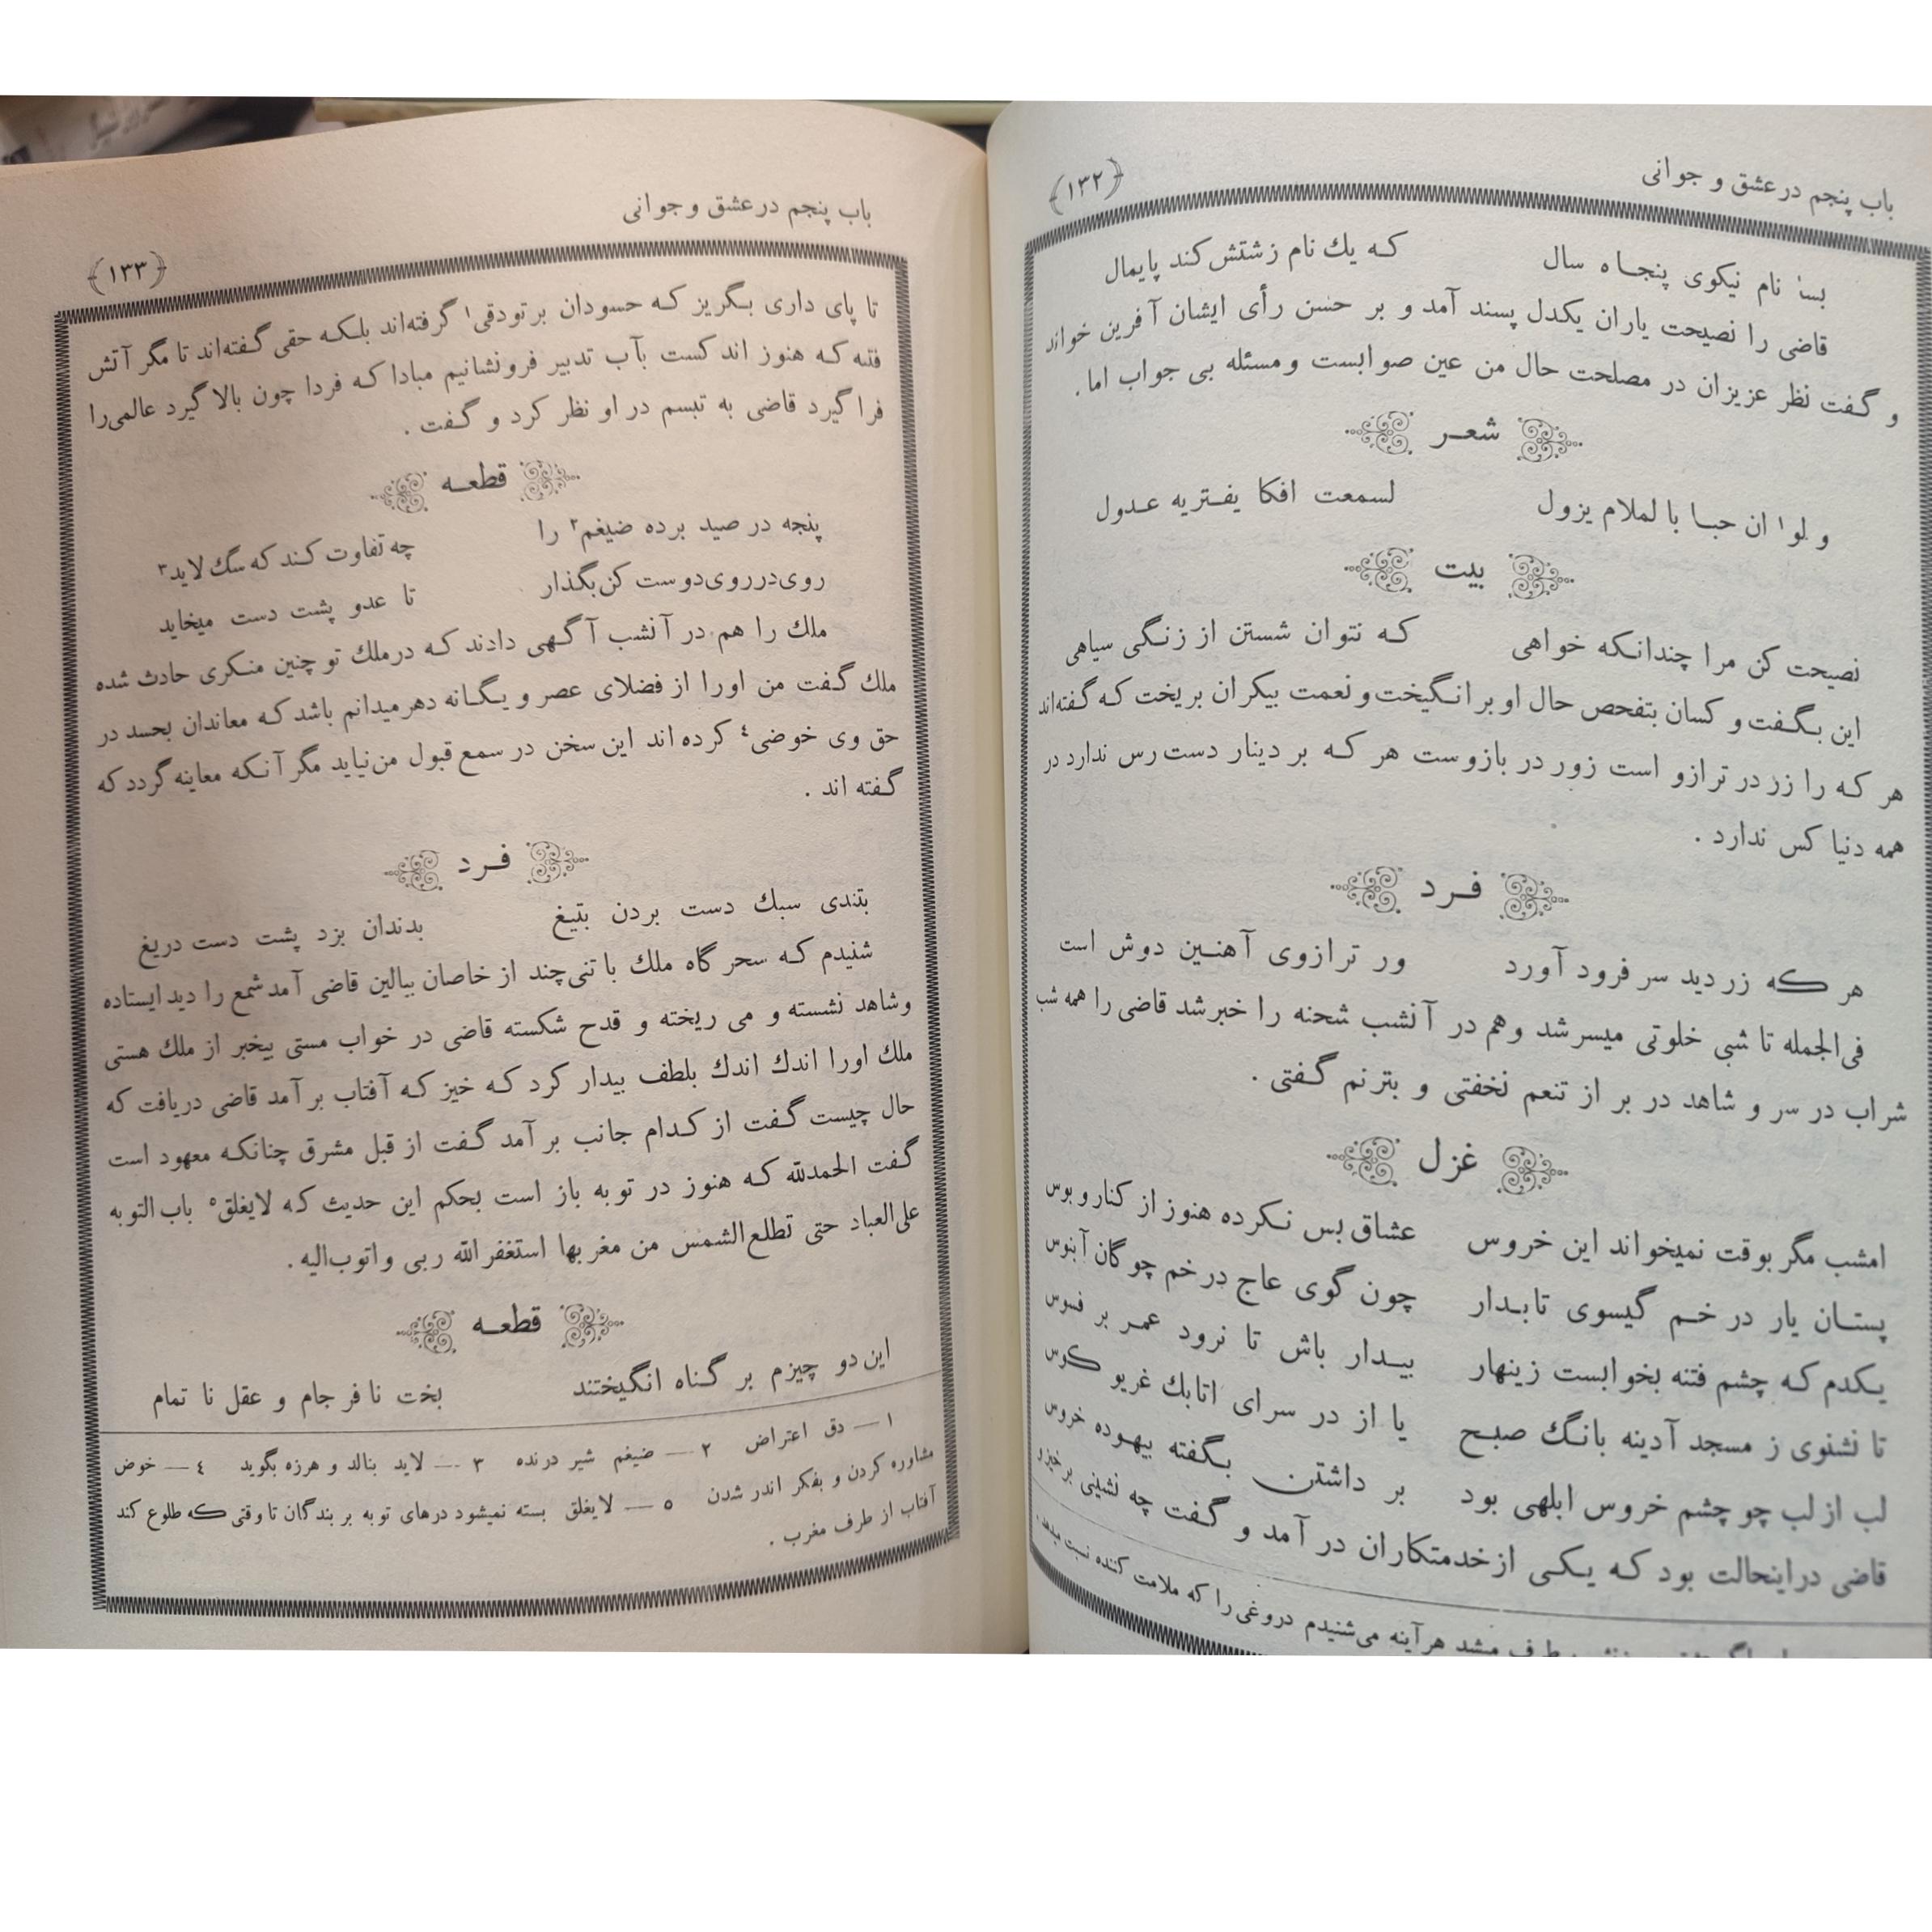 باب پنجم در عشق و جوانی
﴿۱۳۲﴾
بسا نام نیکوی پنجاه سال که یك نام زشتش کند پایمال
قاضی را نصیحت یاران یکدل پسند آمد و بر حسن رأی ایشان آفرین خواند
و گفت نظر عزیزان در مصلحت حال من عین صوابست و مسئله بی جواب اما.
شعر
و لو۱ ان حبا با لملام یزول لسمعت افکا یفتریه عدول
بیت
نصیحت کن مرا چندانکه خواهی که نتوان شستن از زنگی سیاهی
این بگفت و کسان بتفحص حال او بر انگیخت و نعمت بیکران بریخت که گفته‌اند
هر که را زر در ترازو است زور در بازوست هر که بر دینار دست رس ندارد در
همه دنیا کس ندارد .
فرد
هر که زر دید سر فرود آورد ور ترازوی آهنین دوش است
فی‌الجمله تا شبی خلوتی میسر شد و هم در آنشب شحنه را خبر شد قاضی را همه شب
شراب در سر و شاهد در بر از تنعم نخفتی و بترنم گفتی .
غزل
امشب مگر بوقت نمیخواند این خروس عشاق بس نکرده هنوز از کنار و بوس
پستان یار در خم گیسوی تابدار چون گوی عاج در خم چوگان آبنوس
یکدم که چشم فتنه بخوابست زینهار بیدار باش تا نرود عمر بر فسوس
تا نشنوی ز مسجد آدینه بانگ صبح یا از در سرای اتابك غریو کوس
لب از لب چو چشم خروس ابلهی بود بر داشتن بگفته بیهوده خروس
قاضی در اینحالت بود که یکی از خدمتکاران در آمد و گفت چه نشینی برخیز و
طرف میشد هر آینه می‌شنیدم دروغی را که ملامت کننده نسبت میدهد.
باب پنجم در عشق و جوانی
﴿۱۳۳﴾
تا پای داری بگریز که حسودان بر تو دقی۱ گرفته‌اند بلکه حقی گفته‌اند تا مگر آتش
فتنه که هنوز اندکست بآب تدبیر فرو نشانیم مبادا که فردا چون بالا گیرد عالمی را
فرا گیرد قاضی به تبسم در او نظر کرد و گفت .
قطعه
پنجه در صید برده ضیغم۲ را چه تفاوت کند که سگ لاید۳
روی در روی دوست کن بگذار تا عدو پشت دست میخاید
ملك را هم در آنشب آگهی دادند که در ملك تو چنین منکری حادث شده
ملك گفت من او را از فضلای عصر و یگانه دهر میدانم باشد که معاندان بحسد در
حق وی خوضی٤ کرده اند این سخن در سمع قبول من نیاید مگر آنکه معاینه گردد که
گفته اند .
فرد
بتندی سبك دست بردن بتیغ بدندان بزد پشت دست دریغ
شنیدم که سحر گاه ملك با تنی چند از خاصان ببالین قاضی آمد شمع را دید ایستاده
و شاهد نشسته و می ریخته و قدح شکسته قاضی در خواب مستی بیخبر از ملك هستی
ملك او را اندك اندك بلطف بیدار کرد که خیز که آفتاب بر آمد قاضی دریافت که
حال چیست گفت از کدام جانب بر آمد گفت از قبل مشرق چنانکه معهود است
گفت الحمدلله که هنوز در توبه باز است بحکم این حدیث که لایغلق۵ باب التوبه
علی‌العباد حتی تطلع‌الشمس من مغربها استغفرالله ربی و اتوب‌الیه .
قطعه
این دو چیزم بر گناه انگیختند بخت نا فرجام و عقل نا تمام
۱ — دق اعتراض ۲ — ضیغم شیر درنده ۳ — لاید بنالد و هرزه بگوید ٤ — خوض
مشاوره کردن و بفکر اندر شدن ۵ — لایغلق بسته نمیشود درهای توبه بر بندگان تا وقتی که طلوع کند
آفتاب از طرف مغرب .